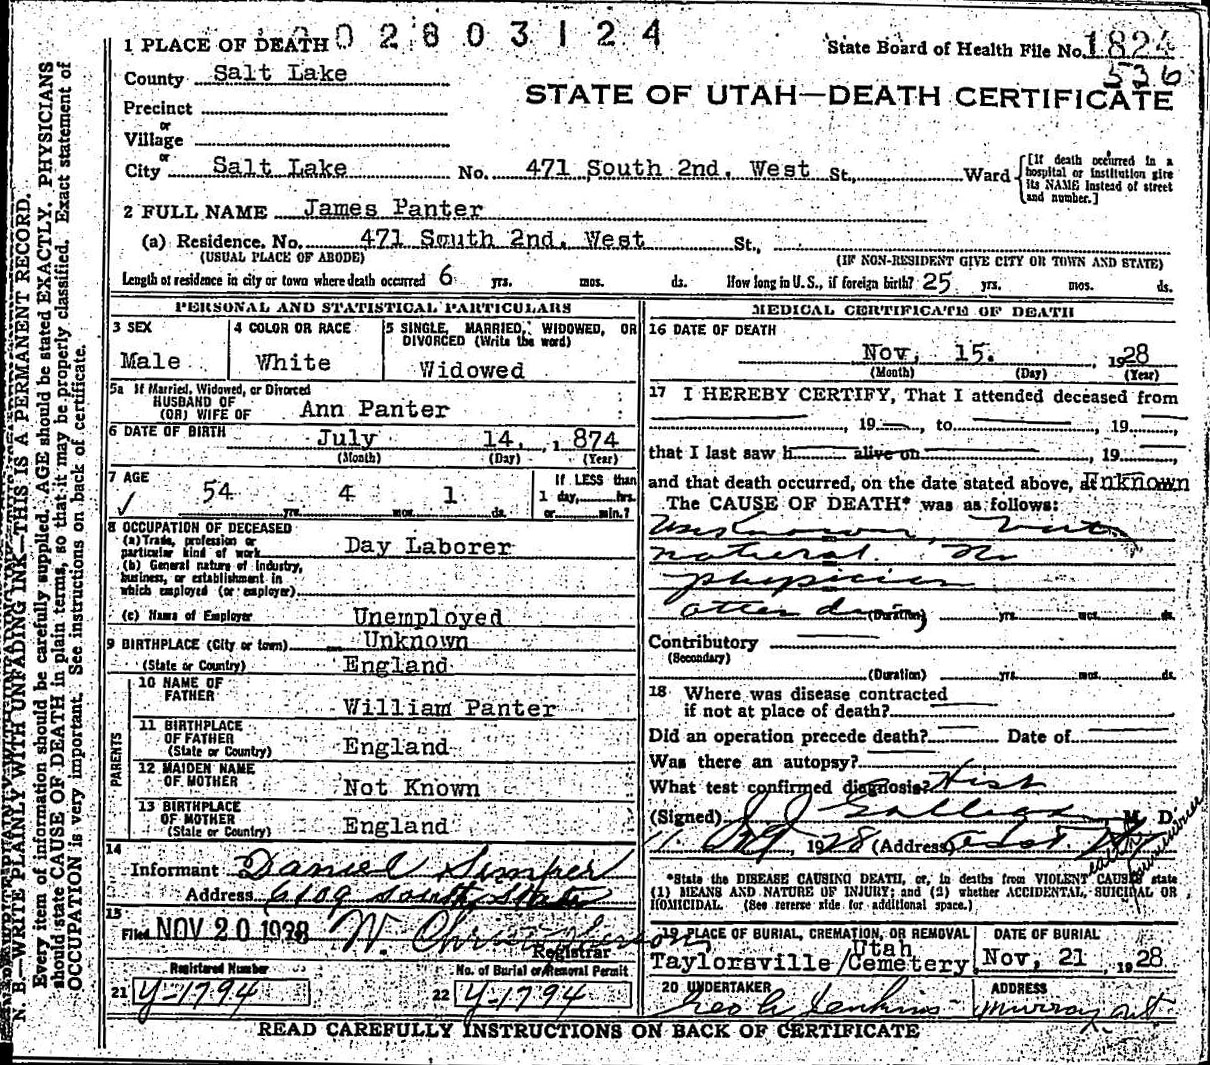 002803124
1 PLACE OF DEATH
State Board of Health File No. 1824
536
County Salt Lake
STATE OF UTAH—DEATH CERTIFICATE
Precinct
or
Village
or
City Salt Lake No. 471 South 2nd. West St., Ward
[If death occurred in a hospital or institution give its NAME instead of street and number.]
2 FULL NAME James Panter
(a) Residence. No. 471 South 2nd. West St.,
(USUAL PLACE OF ABODE) (IF NON-RESIDENT GIVE CITY OR TOWN AND STATE)
Length of residence in city or town where death occurred 6 yrs. mos. ds. How long in U. S., if foreign birth? 25 yrs. mos. ds.
PERSONAL AND STATISTICAL PARTICULARS
3 SEX
Male
4 COLOR OR RACE
White
5 SINGLE, MARRIED, WIDOWED, OR
DIVORCED (Write the word)
Widowed
5a If Married, Widowed, or Divorced
HUSBAND OF
(OR) WIFE OF Ann Panter
6 DATE OF BIRTH July 14, 1874
(Month) (Day) (Year)
7 AGE
54 yrs. 4 mos. 1 ds.
If LESS than
1 day, hrs.
or min.?
8 OCCUPATION OF DECEASED
(a) Trade, profession or
particular kind of work Day Laborer
(b) General nature of industry,
business, or establishment in
which employed (or employer)
(c) Name of Employer Unemployed
9 BIRTHPLACE (City or town) Unknown
(State or Country) England
PARENTS
10 NAME OF
FATHER William Panter
11 BIRTHPLACE
OF FATHER
(State or Country) England
12 MAIDEN NAME
OF MOTHER Not Known
13 BIRTHPLACE
OF MOTHER
(State or Country) England
14
Informant Daniel Simper
Address 6109 South State
15
Filed NOV 20 1928 W. Christopherson
Registrar
Registered Number
21 Y-1794
No. of Burial or Removal Permit
22 Y-1794
MEDICAL CERTIFICATE OF DEATH
16 DATE OF DEATH
Nov, 15. 1928
(Month) (Day) (Year)
17 I HEREBY CERTIFY, That I attended deceased from
, 19 , to , 19 ,
that I last saw h alive on , 19 ,
and that death occurred, on the date stated above, at Unknown
The CAUSE OF DEATH* was as follows:
Unknown, but
natural. No
physician
attending
(Duration) yrs. mos. ds.
Contributory
(Secondary)
(Duration) yrs. mos. ds.
18 Where was disease contracted
if not at place of death?
Did an operation precede death? Date of
Was there an autopsy?
What test confirmed diagnosis? Hist
(Signed) J J Galligan, M. D.
11. 1928 (Address)
*State the DISEASE CAUSING DEATH, or, in deaths from VIOLENT CAUSES state
(1) MEANS AND NATURE OF INJURY; and (2) whether ACCIDENTAL, SUICIDAL OR
HOMICIDAL. (See reverse side for additional space.)
19 PLACE OF BURIAL, CREMATION, OR REMOVAL
Utah
Taylorsville Cemetery
DATE OF BURIAL
Nov, 21, 1928.
20 UNDERTAKER
Geo A Jenkins
ADDRESS
Murray, Ut
READ CAREFULLY INSTRUCTIONS ON BACK OF CERTIFICATE
N. B.—WRITE PLAINLY WITH UNFADING INK—THIS IS A PERMANENT RECORD.
Every item of information should be carefully supplied. AGE should be stated EXACTLY. PHYSICIANS
should state CAUSE OF DEATH in plain terms, so that it may be properly classified. Exact statement of
OCCUPATION is very important. See instructions on back of certificate.